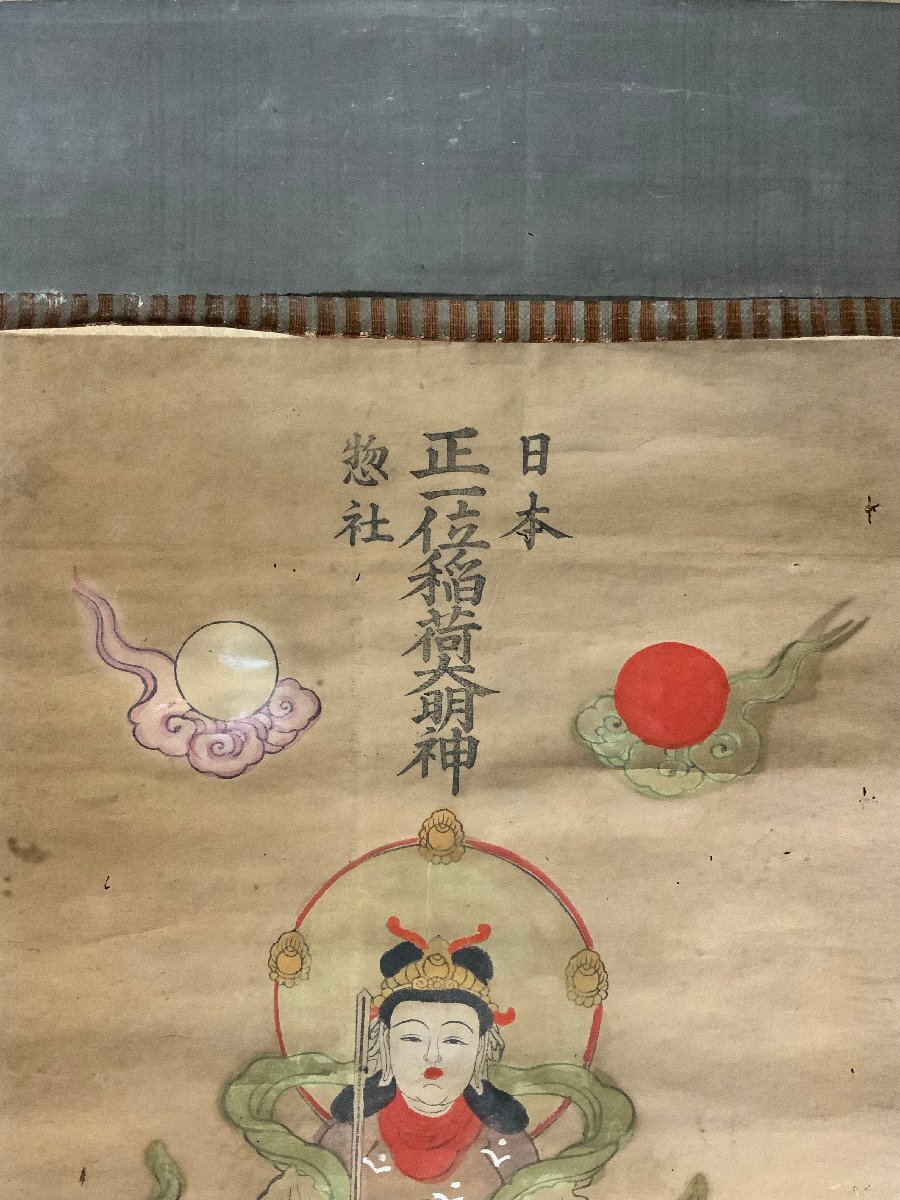 日本
正一位稲荷大明神
惣社